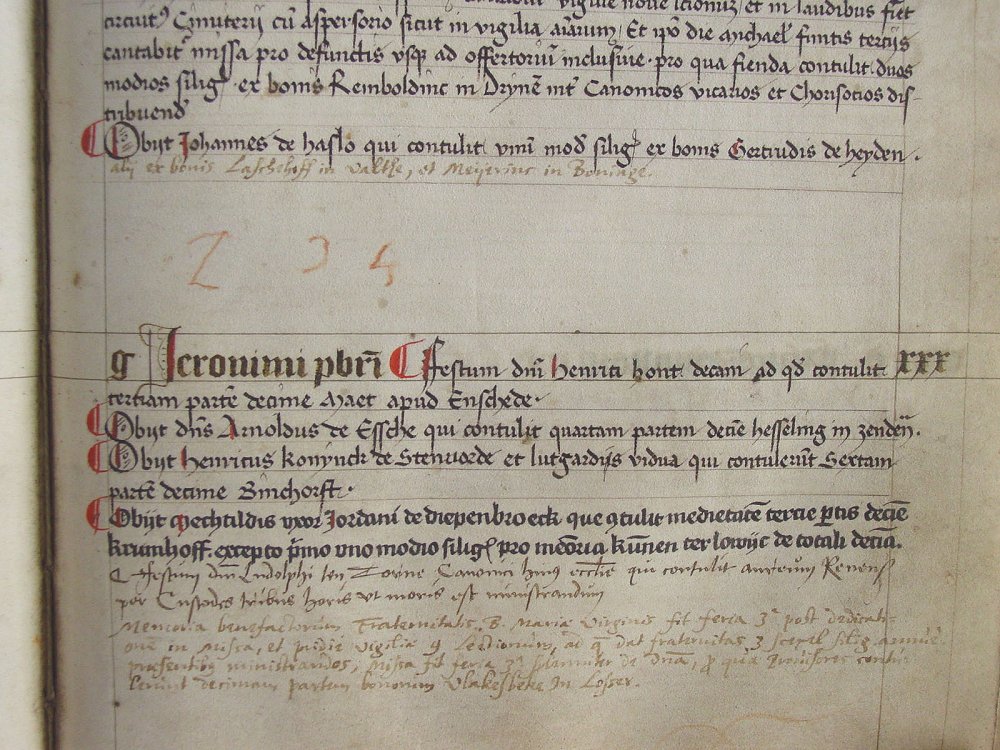 circuit9 Cimiterij cū aspersorio sicut in vigilia aīarum / Et ip̄o die anchael' funtis tercijs
cantabit' missa pro defunctis vsq3 ad offertoriū inclusiue · pro qua fienda contulit duos
modios silig' · ex bonis Remboldinc in Drynē int' Canonicos vicarios et Chorisocios dis-
tribuend'
Obijt Johannes de haslo qui contulit vnū mod' silig' ex bonis Gertrudis de heyden .
alij ex bonis Laschehoff in Valthe, et Meijerinc in Boninge.
2 3 4
g Jeronimi pb̄ri Festum dn̄i henrici hont decani ad qd' contulit xxx
terciam partē decime Maet apud Enschede ·
Obijt dn̄s Arnoldus de Essche qui contulit quartam partem decīe hesseling in zenden̄ .
Obijt henricus konynck de Stenuorde et lutgardijs vidua qui contulerūt Sextam
partē decime Binchorst ·
Obijt Mechtildis vxor Jordani de diepenbroeck que 9tulit medietatē tercie p̄tis decīe
krumhoff . excepto p̄mo vno modio silig' pro meōria kunnen ter lowijc de totali decīa .
Festum dn̄i Ludolphi ten Canonici hui9 eccl̄ie qui contulit aureum Renens'
per Custodes tribus horis vt moris est ministrandum
Memoria benefactorum Fraternitatis B. Mariæ Virginis fit feria 3ᵃ post dedicati-
onē in Missa, et pridie vigiliæ 9 Lectionum, ad q̄ dat fraternitas 3 scepel silig annue
præsentibus ministrandos, Missa fit feria 3ᵃ de Dn̄a, p̄ qua prouisores contu-
lerunt decimam partem bonorum Vlakesbeke in Losser.